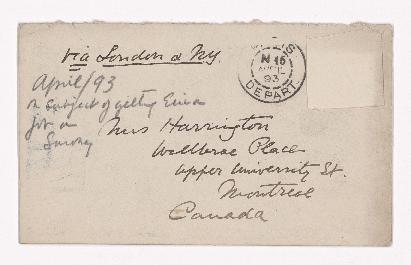 via London & NY.
April/93
on subject of getting Eric a
job on
Survey
Mrs Harrington
Wallbrae Place
Upper University St.
Montreal
Canada
N 16
AVRIL
93
DEPART